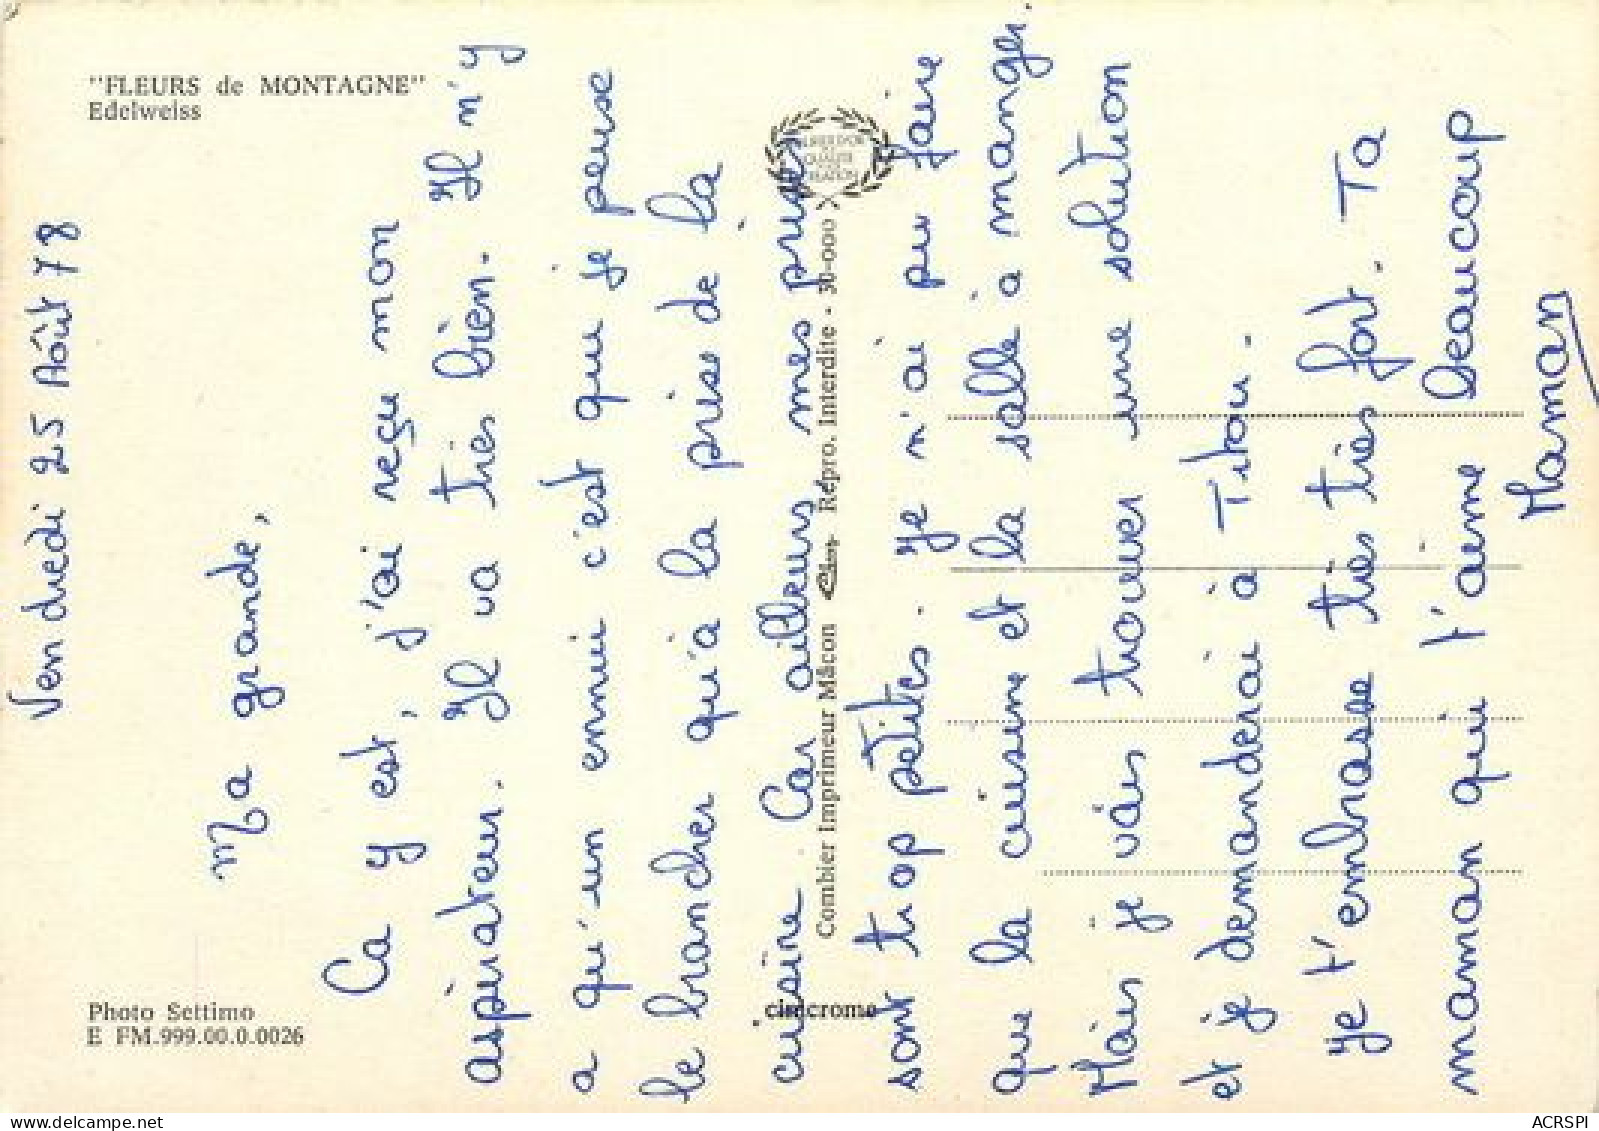 "FLEURS de MONTAGNE"
Edelweiss
Vendredi 25 Août 78
Ma grande,
Ca y est, j'ai reçu mon
aspirateur. Il va très bien. Il n'y
a qu'un ennui c'est que je peuse
le brancher qu'à la prise de la
cuisine. Car ailleurs mes prises
sont trop petites. Je n'ai pu faire
que la cuisine et la salle à manger.
Mais je vais trouver une solution
et je demanderai à Titou.
Je t'embrasse très très très fort. Ta
maman qui t'aime beaucoup
Maman
Combier Imprimeur Mâcon Répro. Interdite - 30-000 X
Photo Settimo
E FM.999.00.0.0026
cimcrome
ACRSPI